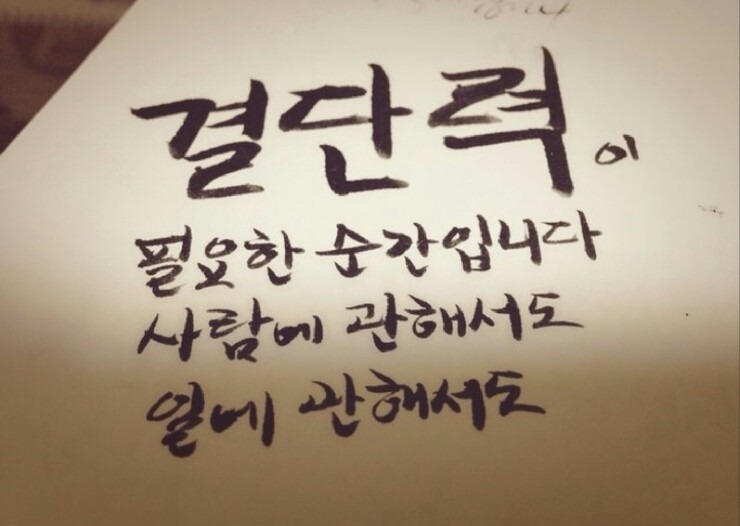 결단력이
필요한 순간입니다
사람에 관해서도
일에 관해서도